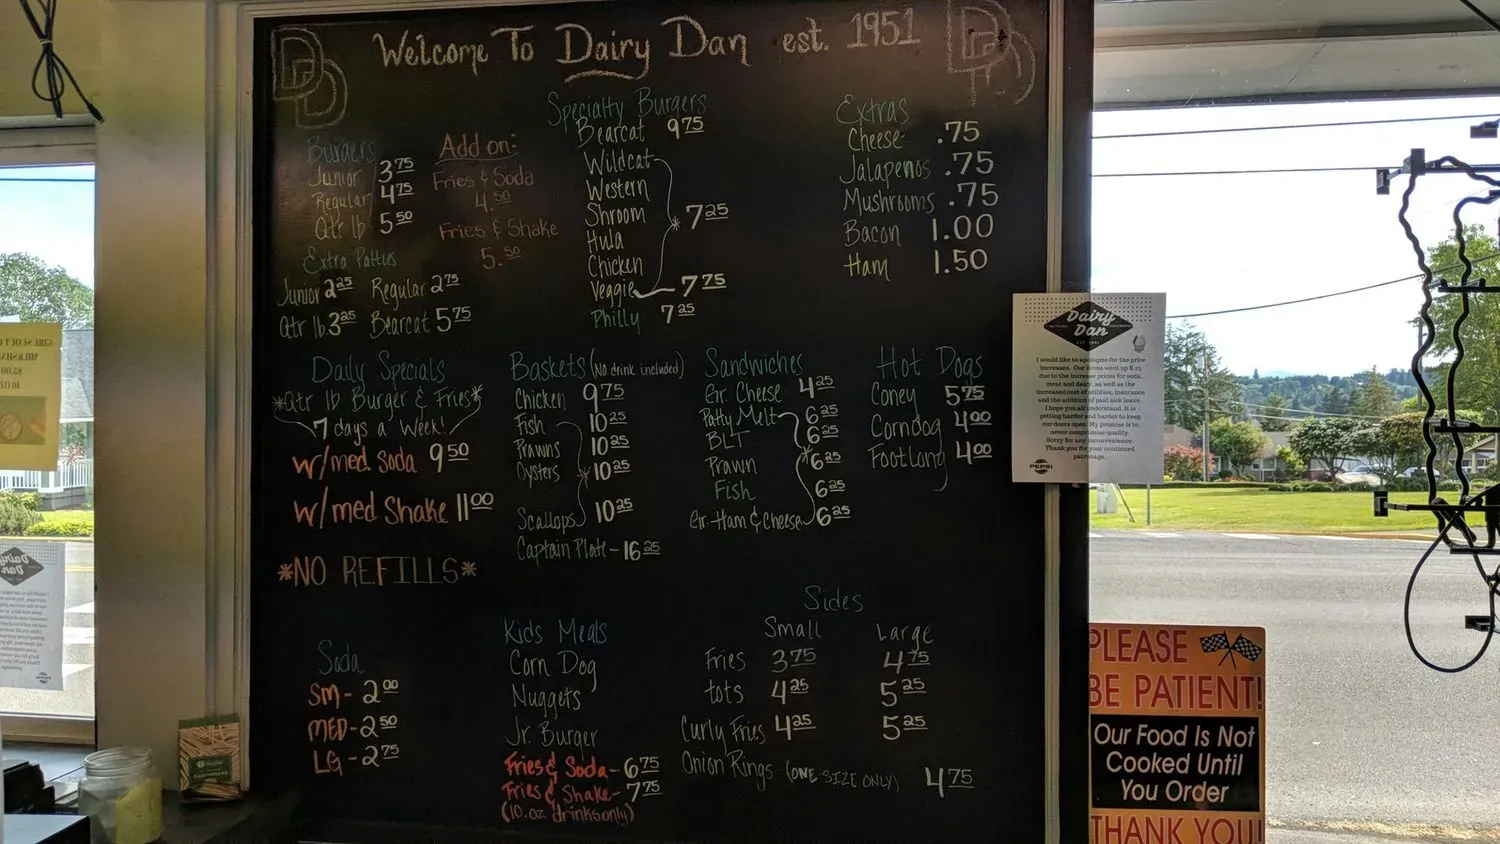 Welcome To Dairy Dan est. 1951
DD
DD
Burgers
Junior 3.75
Regular 4.75
Qtr lb 5.50
Extra Patties
Junior 2.25 Regular 2.75
Qtr lb 3.25 Bearcat 5.75
Add on:
Fries & Soda
4.50
Fries & Shake
5.50
Specialty Burgers
Bearcat 9.75
Wildcat
Western
Shroom * 7.25
Hula
Chicken
Veggie 7.75
Philly 7.25
Extras
Cheese .75
Jalapenos .75
Mushrooms .75
Bacon 1.00
Ham 1.50
Daily Specials
*Qtr lb Burger & Fries*
7 days a week!
w/med. Soda 9.50
w/med Shake 11.00
*NO REFILLS*
Baskets (No drink included)
Chicken 9.75
Fish 10.25
Prawns 10.25
Oysters * 10.25
Scallops 10.25
Captain Plate - 16.25
Sandwiches
Gr. Cheese 4.25
Patty Melt 6.25
BLT 6.25
Prawn * 6.25
Fish 6.25
Gr. Ham & Cheese 6.25
Hot Dogs
Coney 5.75
Corndog 4.00
Footlong 4.00
Soda
SM - 2.00
MED - 2.50
LG - 2.75
Kids Meals
Corn Dog
Nuggets
Jr. Burger
Fries & Soda - 6.75
Fries & Shake - 7.75
(10.oz drinks only)
Sides
Small Large
Fries 3.75 4.75
tots 4.25 5.25
Curly Fries 4.25 5.25
Onion Rings (ONE SIZE ONLY) 4.75
Dairy
Dan
EST 1951
I would like to apologize for the price
increases. Our items went up $.25
due to the increase prices for soda,
meat and dairy, as well as the
increased cost of utilities, insurance
and the addition of paid sick leave.
I hope you all understand. It is
getting harder and harder to keep
our doors open. My promise is to
never compromise quality.
Sorry for any inconvenience.
Thank you for your continued
patronage.
PEPSI
PLEASE
BE PATIENT!
Our Food Is Not
Cooked Until
You Order
THANK YOU!
GIRL SCOUT
MILKSHA
$5.00
16 OZ
Dairy
Dan